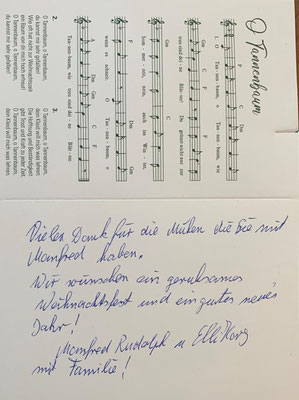 O Tannenbaum
1. O Tan-nen-baum, o Tan-nen-baum, wie
treu sind dei-ne Blät-ter! Du grünst nicht nur zur
Som-mer-zeit, nein, auch im Win-ter,
wenn es schneit. O Tan-nen-baum, o
Tan-nen-baum, wie treu sind dei-ne Blät-ter.
2.
O Tannenbaum, o Tannenbaum,
du kannst mir sehr gefallen!
Wie oft hat nicht zur Weihnachtszeit
ein Baum von dir mich hoch erfreut!
O Tannenbaum, o Tannenbaum,
du kannst mir sehr gefallen!
O Tannenbaum, o Tannenbaum,
dein Kleid will mich was lehren:
Die Hoffnung und Beständigkeit
gibt Trost und Kraft zu jeder Zeit.
O Tannenbaum, o Tannenbaum,
dein Kleid will mich was lehren.
Vielen Dank für die Mühen die Sie mit
Manfred haben.
Wir wünschen ein geruhsames
Weihnachtsfest und ein gutes neues
Jahr!
Manfred Rudolph u Elli
mit Familie!